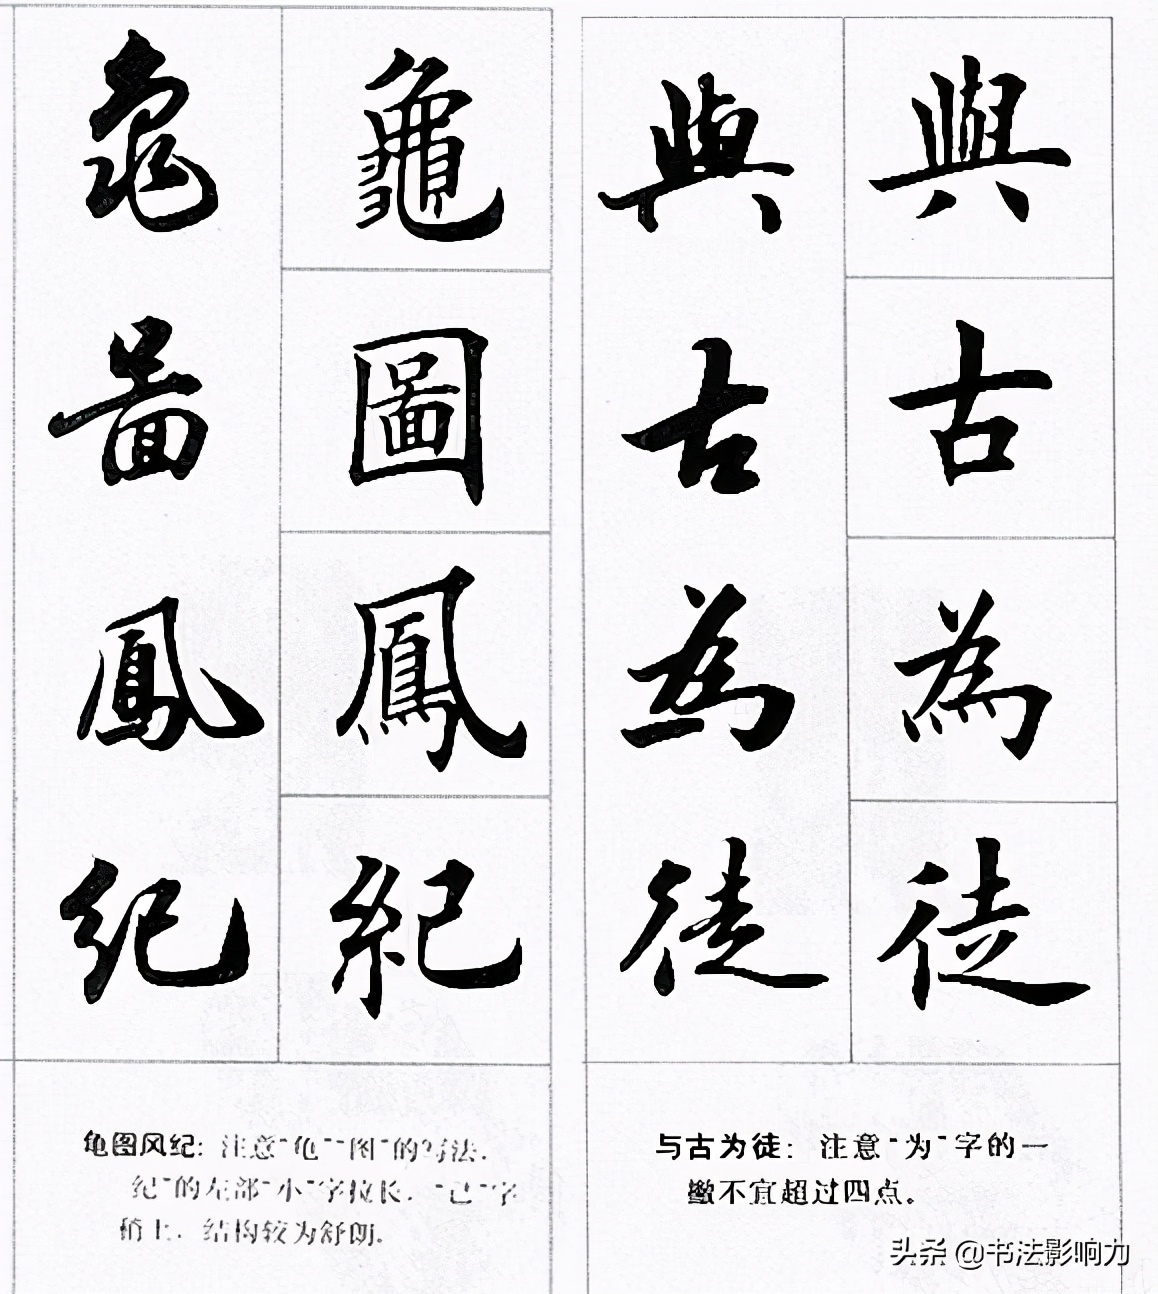 與古為徒
與古為徒
与古为徒：注意“为”字的一
撇不宜超过四点。
龜圖鳳紀
龜圖鳳紀
龟图风纪：注意“龟”“图”的写法．
纪”的左部“小”字拉长．“己”字
稍上．结构较为舒朗．
头条 @书法影响力